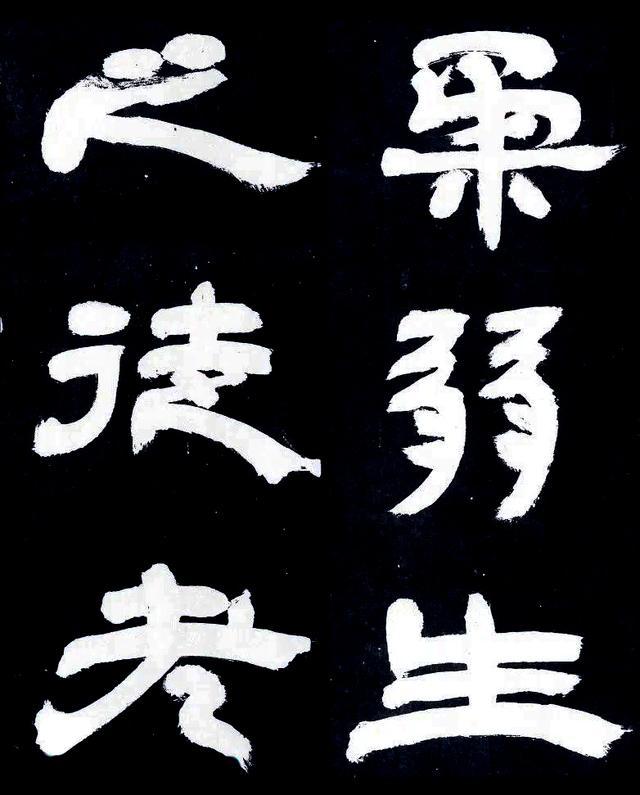 柔弱生
之徒老